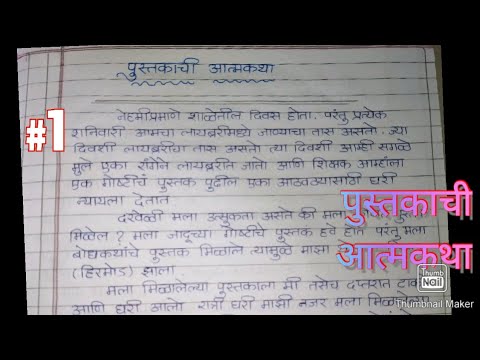 पुस्तकाची आत्मकथा
नेहमीप्रमाणे शाळेतील दिवस होता. परंतु प्रत्येक
शनिवारी आमचा लायब्ररीमध्ये जाण्याचा तास असतो. ज्या
दिवशी लायब्ररीचा तास असतो त्या दिवशी आम्ही सगळे
मुले एका रांगेने लायब्ररीत जातो आणि शिक्षक आम्हाला
एक गोष्टीचं पुस्तक पुढील एका आठवड्यासाठी घरी
न्यायला देतात
दरवेळी मला उत्सुकता असते की मला
मिळेल? मला जादूच्या गोष्टीचे पुस्तक हवे होते परंतु मला
बोधकथांचे पुस्तक मिळाले त्यामुळे माझा
(हिरमोड) झाला.
मला मिळालेल्या पुस्तकाला मी तसेच दप्तरात
आणि घरी आलो. रात्री घरी माझी नजर मला
#1
पुस्तकाची
आत्मकथा
Thumb
Nail
Thumbnail Maker